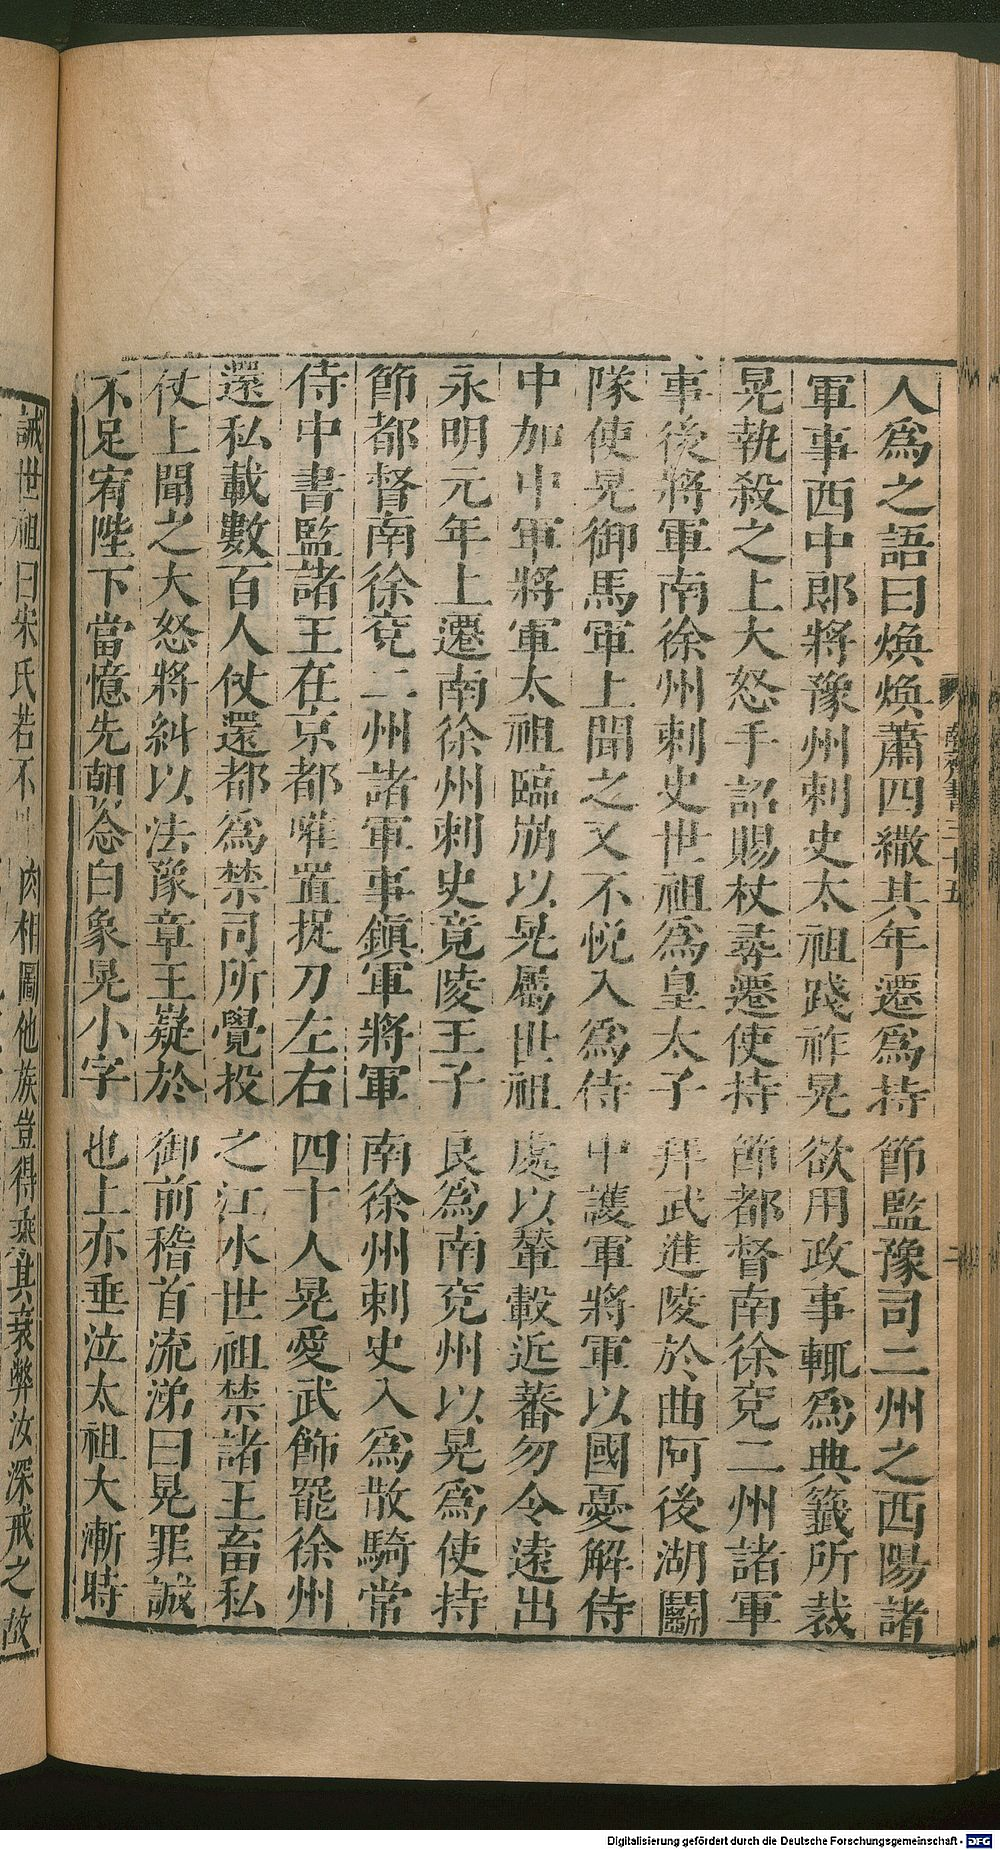 人爲之語曰煥煥蕭四繖其年遷爲持節監豫司二州之西陽諸
軍事西中郎將豫州刺史太祖踐祚晃欲用政事輒爲典籤所裁
晃執殺之上大怒手詔賜杖尋遷使持節都督南徐兗二州諸軍
事後將軍南徐州刺史世祖爲皇太子拜武進陵於曲阿後湖鬭
隊使晃御馬軍上聞之又不悅入爲侍中護軍將軍以國憂解侍
中加中軍將軍太祖臨崩以晃屬世祖處以輦轂近蕃勿令遠出
永明元年上遷南徐州刺史竟陵王子良爲南兗州以晃爲使持
節都督南徐兗二州諸軍事鎭軍將軍南徐州刺史入爲散騎常
侍中書監諸王在京都唯置捉刀左右四十人晃愛武飾罷徐州
還私載數百人仗還都爲禁司所覺投之江水世祖禁諸王畜私
仗上聞之大怒將糾以法豫章王嶷於御前稽首流涕曰晃罪誠
不足宥陛下當憶先朝念白象晃小字也上亦垂泣太祖大漸時
誡世祖曰宋氏若不 肉相圖他族豈得乘其衰弊汝深戒之故
南齊書三十五
二
Digitalisierung gefördert durch die Deutsche Forschungsgemeinschaft - DFG